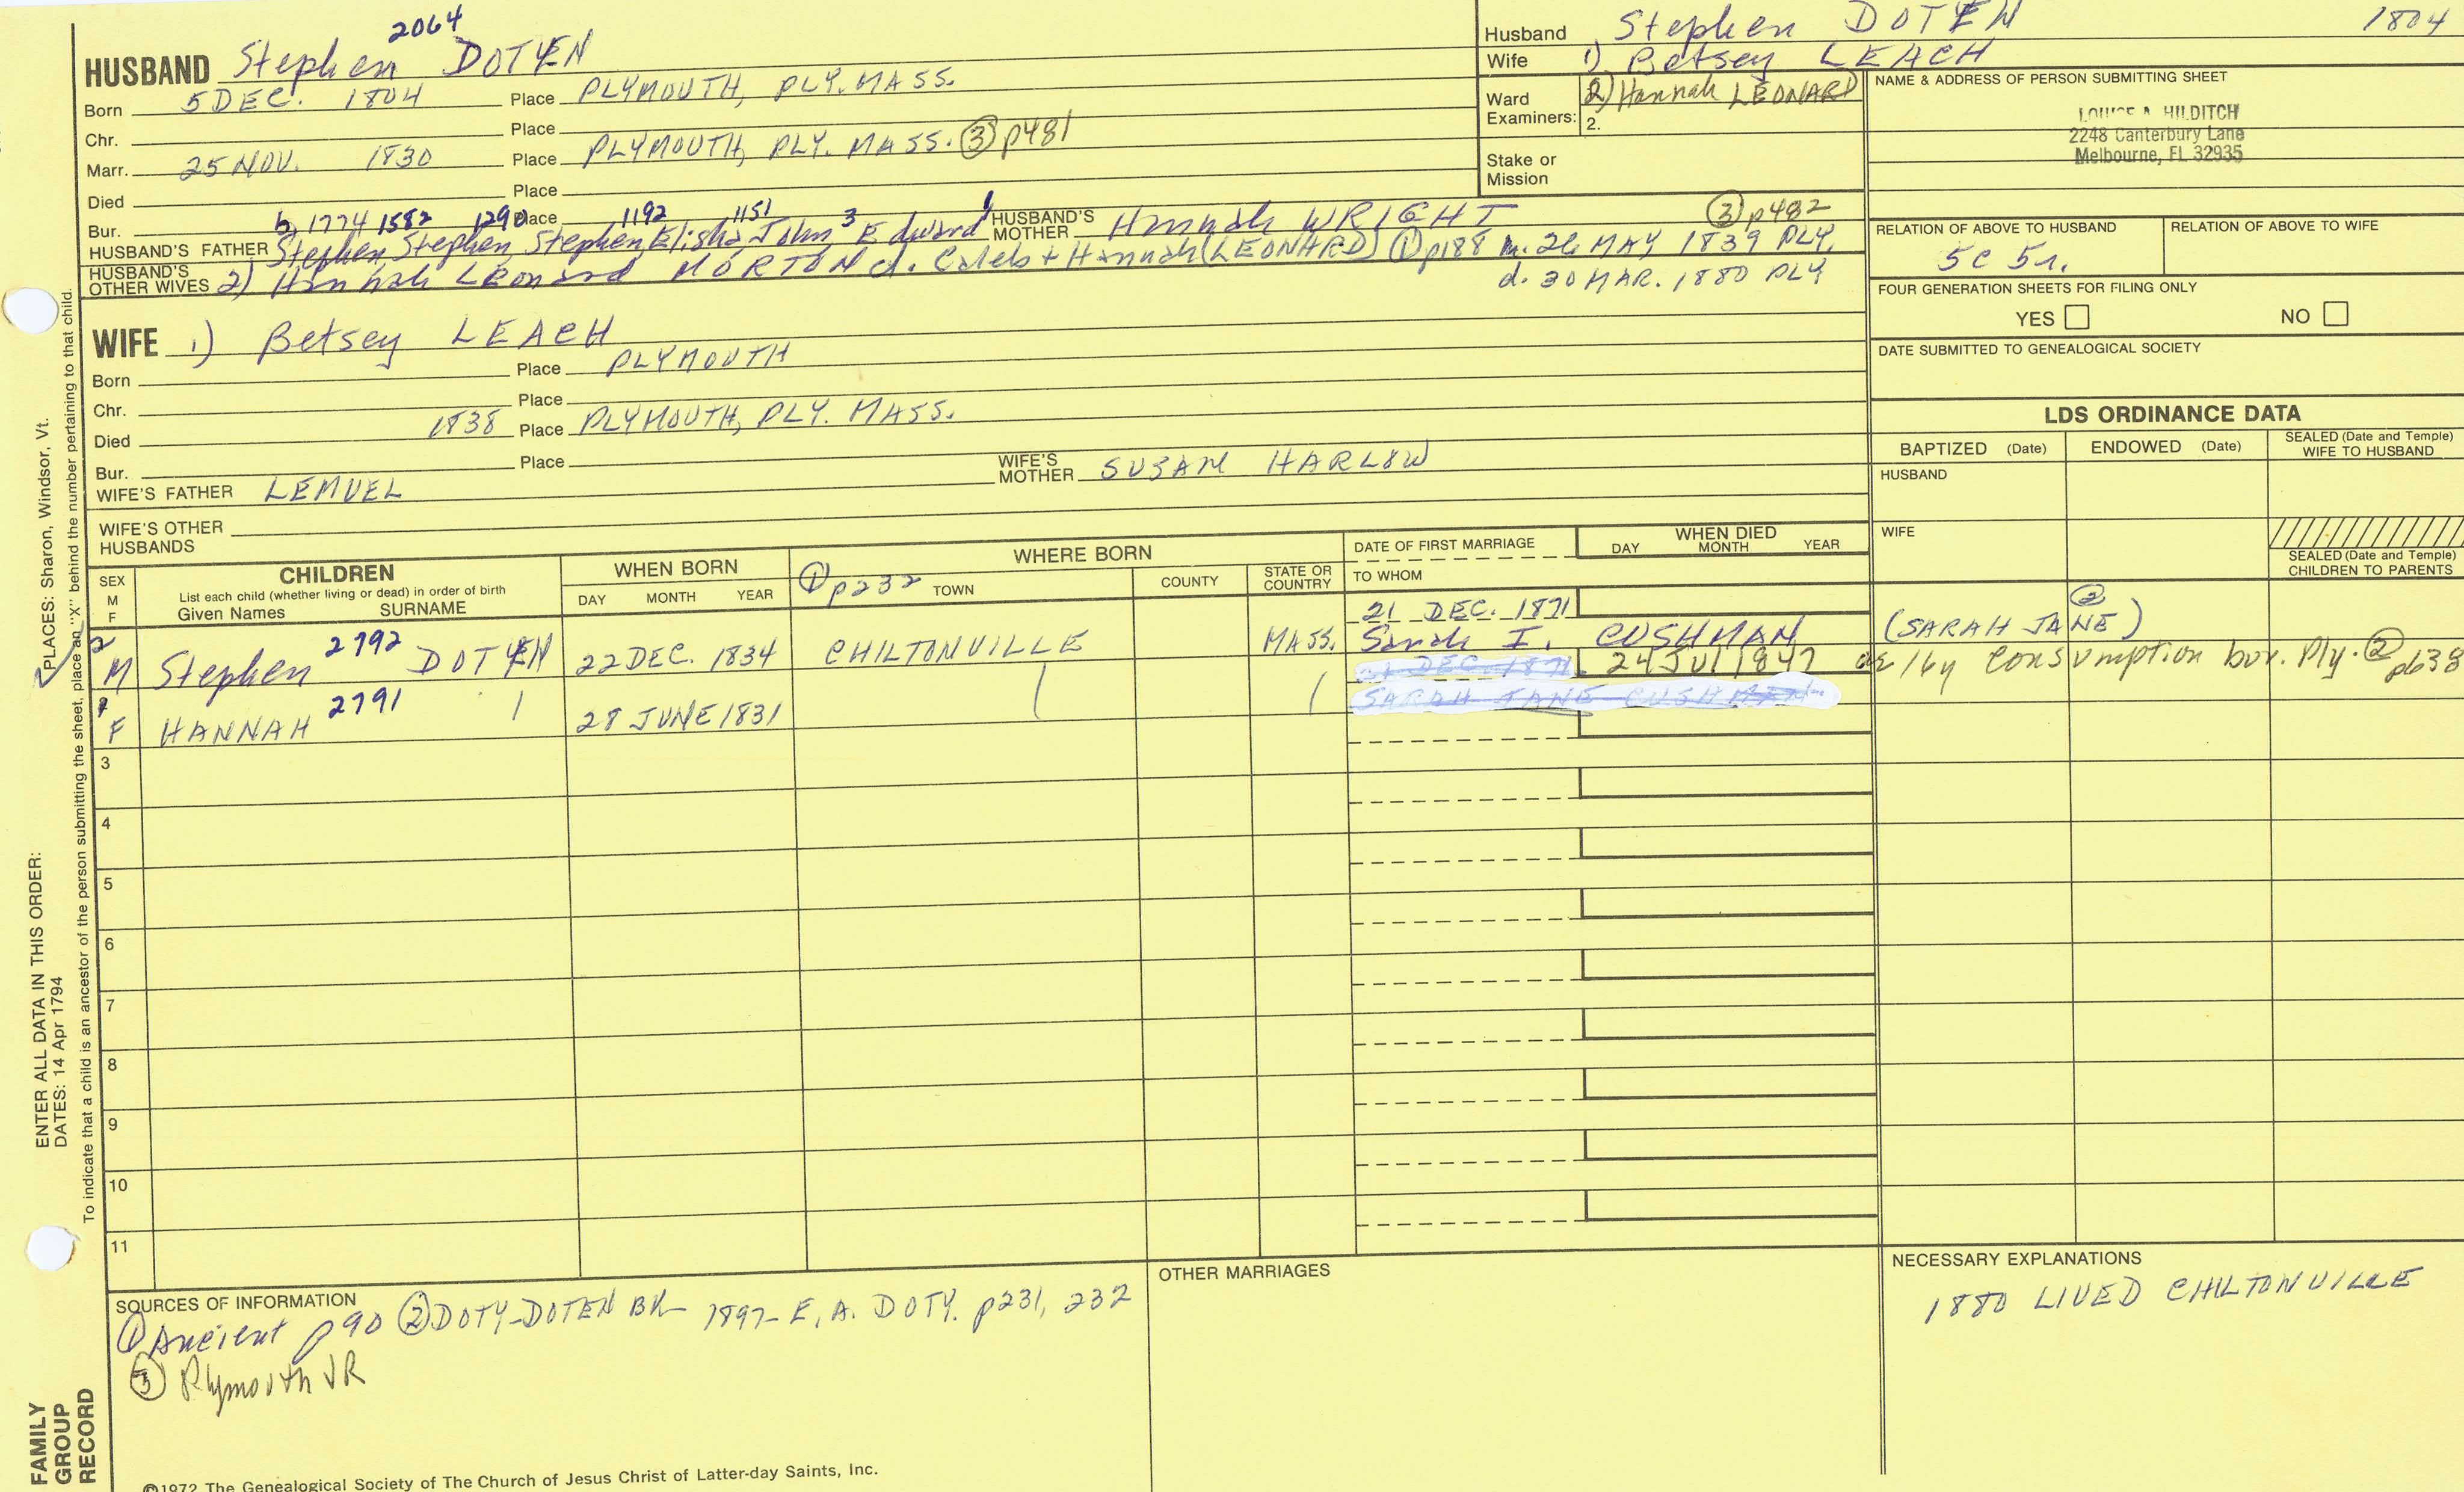 2064
HUSBAND Stephen DOTEN
Born 5 DEC. 1804 Place PLYMOUTH, PLY. MASS.
Chr. Place
Marr. 25 NOV. 1830 Place PLYMOUTH, PLY. MASS. ③ p481
Died Place
Bur. Place
b. 1774 1582 1290 1192 1151 3 1
HUSBAND'S FATHER Stephen, Stephen, Stephen, Elisha, John Edward HUSBAND'S MOTHER Hannah WRIGHT ③ p482
HUSBAND'S OTHER WIVES 2) Hannah Leonard MORTON d. Caleb + Hannah (LEONARD) ① p188 m. 26 MAY 1839 PLY.
d. 30 MAR. 1880 PLY
WIFE 1) Betsey LEACH
Born Place PLYMOUTH
Chr. Place
Died 1838 Place PLYMOUTH, PLY. MASS.
Bur. Place
WIFE'S FATHER LEMUEL WIFE'S MOTHER SUSAN HARLOW
WIFE'S OTHER HUSBANDS
Husband Stephen DOTEN 1804
Wife 1) Betsey LEACH
Ward Examiners: 2) Hannah LEONARD
2.
Stake or Mission
NAME & ADDRESS OF PERSON SUBMITTING SHEET
LOUISE A HILDITCH
2248 Canterbury Lane
Melbourne, FL 32935
RELATION OF ABOVE TO HUSBAND RELATION OF ABOVE TO WIFE
5c 5r.
FOUR GENERATION SHEETS FOR FILING ONLY
YES NO
DATE SUBMITTED TO GENEALOGICAL SOCIETY
LDS ORDINANCE DATA
BAPTIZED (Date) ENDOWED (Date) SEALED (Date and Temple) WIFE TO HUSBAND
HUSBAND
WIFE
SEALED (Date and Temple) CHILDREN TO PARENTS
SEX M F
CHILDREN
List each child (whether living or dead) in order of birth
Given Names SURNAME
WHEN BORN
DAY MONTH YEAR
WHERE BORN
① p232 TOWN COUNTY STATE OR COUNTRY
DATE OF FIRST MARRIAGE
TO WHOM
WHEN DIED
DAY MONTH YEAR
21 DEC. 1871
2 M Stephen 2792 DOTEN 22 DEC. 1834 CHILTONVILLE MASS. Sarah I. CUSHMAN (SARAH JANE) ②
21 DEC. 1871 24 JUL 1847 ae 16y Consumption bur. Ply. ② p638
1 F HANNAH 2791 28 JUNE 1831 SARAH JANE CUSHMAN
3
4
5
6
7
8
9
10
11
SOURCES OF INFORMATION
① Ancient p 90 ② DOTY-DOTEN BK- 1897- E. A. DOTY. p231, 232
③ Plymouth VR
OTHER MARRIAGES
NECESSARY EXPLANATIONS
1880 LIVED CHILTONVILLE
©1972 The Genealogical Society of The Church of Jesus Christ of Latter-day Saints, Inc.
FAMILY GROUP RECORD
ENTER ALL DATA IN THIS ORDER:
DATES: 14 Apr 1794
PLACES: Sharon, Windsor, Vt.
To indicate that a child is an ancestor of the person submitting the sheet, place an "X" behind the number pertaining to that child.